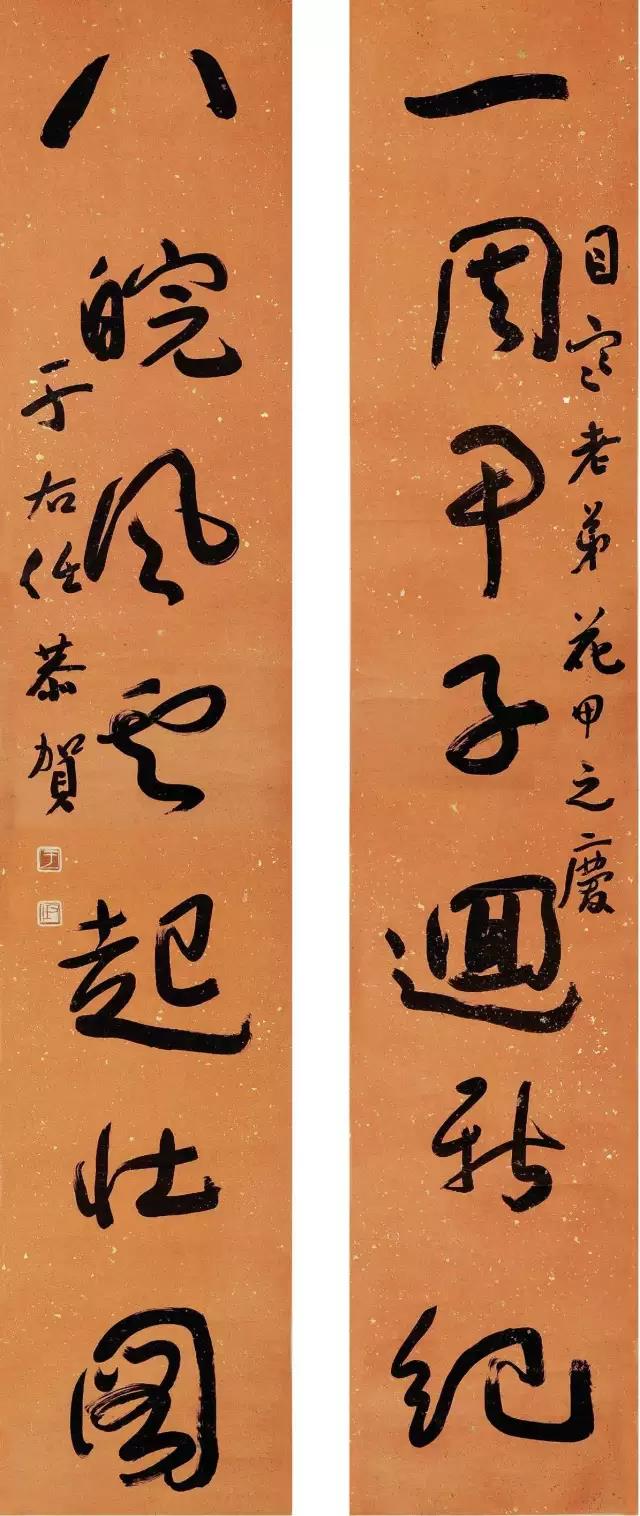 一周甲子迴新紀
目寒老弟花甲之慶
八皖風雲起壯圖
于右任恭賀